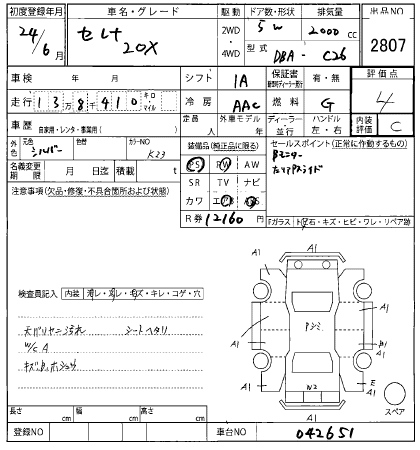 初度登録年月 車名・グレード 駆動 ドア数・形状 排気量 出品NO
24/6月 セレナ 20X 2WD 4WD 5W 2000cc 2807
型式 DBA-C26
車検 年 月 シフト IA 保証書 有・無 評価点
走行 138千410 キロ・マイル 冷房 AAC 燃料 G 4
車歴 自家用・レンタ・事業用( ) 定員 人 外車モデル 年 ディーラー 並行 ハンドル 左・右 内装評価 C
外色 元色 シルバー 色替 カラーNO K23 装備品(純正品に限る) セールスポイント(正常に作動するもの)
名義変更期限 月 日迄 積載 t PS PW AW Bモニター
SR TV ナビ
注意事項(欠品・修復・不具合箇所および状態) カワ エアB ABS
R券 12160円 Fガラス トビ石・キズ・ヒビ・ワレ・リペア跡
検査員記入 内装
天バリヤニ汚れ シートヘタリ
W/C A
キズ、B、ホシュウ
A1
A1 A1
Pシミ
A1 A1
E
A1
W2
A1
スペア
長さ cm 幅 cm 高さ cm
登録NO 車台NO 042651